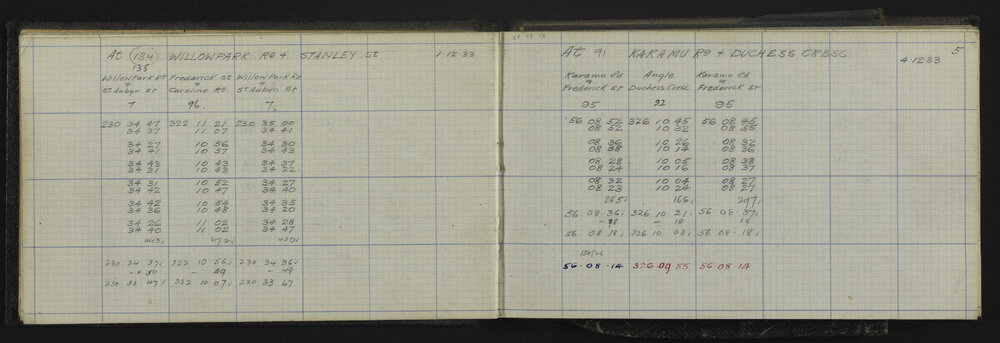 At 134 WILLOWPARK RD & STANLEY ST 1.12.33
135
Willow Park Rd Frederick St Willow Park Rd
& & &
St Aubyn St Caroline Rd St Aubyn St
7 96. 7.
230 34 47 322 11 21 230 35 00
34 37 11 07 34 41
34 27 10 56 34 30
34 41 10 57 34 43
34 43 10 43 34 37
34 31 10 43 34 22
34 31 10 52 34 27
34 42 10 47 34 40
34 42 10 54 34 35
34 36 10 48 34 20
34 26 11 02 34 28
34 40 11 02 34 47
443 672
230 34 37 322 10 56 230 34 36
- 50 - 49 - 49
230 33 47 322 10 07 230 33 47
5
At 91 KARAMU RD & DUCHESS CRESC 4.12.33
Karamu Rd Angle Karamu Rd
& &
Frederick St Duchess Cresc Frederick St
95 92 95
56 08 52 326 10 45 56 08 45
08 52 10 32 08 55
08 36 10 26 08 32
08 38 10 14 08 36
08 28 10 05 08 38
08 24 10 16 08 37
08 32 10 04 08 27
08 23 10 24 08 27
285 166 297
56 08 36 326 10 21 56 08 37
- 18 - 18 19
56 08 18 326 10 03 56 08 18
56.08.14 326 09 55 56.08.14